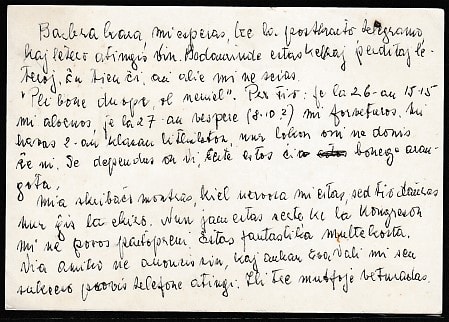 Barbra kara, mi esperas, ke la posthasto telegramo
kaj letero atingis vin. Bedaŭrinde estas kelkaj perditaj le-
teroj, ĉu tien ĉi, aŭ alie mi ne scias.
"Pli bone du ope, ol neniel". Per tio: je la 26-an 15.15
mi alvenos, je la 27-an vespere (8.02) mi forveturos. Mi
havas 2-an klasan litbileton, nur lokon oni ne donis
ĉe ni. Se dependus de vi, ĉe estos ĉio bonege aran-
ĝita.
Mia skribaĉo montras, kiel nervoza mi estas, sed tio daŭras
nur ĝis la ekiro. Nun jam estas certe ke la Kongreson
mi ne povos partopreni. Estas fantastika multekosta.
Via amiko ne anoncis sin, kaj ankaŭ Eva Vali mi sen
sukceso provis telefone atingi. Ili tre multfoje veturadas.